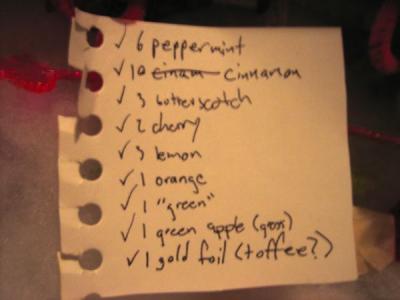 ✓ 6 peppermint
✓ 10 cinam cinnamon
✓ 3 butterscotch
✓ 2 cherry
✓ 3 lemon
✓ 1 orange
✓ 1 "green"
✓ 1 green apple (gross)
✓ 1 gold foil (toffee?)